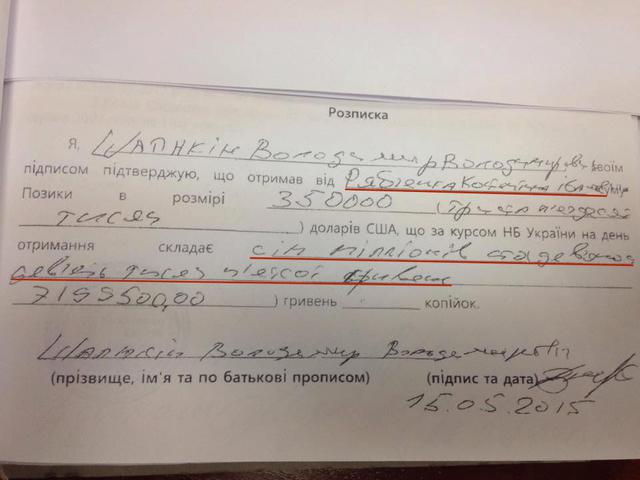 Розписка
Я, Шапкін Володимир Володимирович своїм
підписом підтверджую, що отримав від
Позики в розмірі 350000 (Триста пятдесят
тисяч) доларів США, що за курсом НБ України на день
отримання складає сім мілліонів сто девяносто
девять тисяч пятсот гривень
7199500,00) гривень копійок.
Шапкін Володимир Володимирович
(прізвище, ім'я та по батькові прописом) (підпис та дата)
15.05.2015